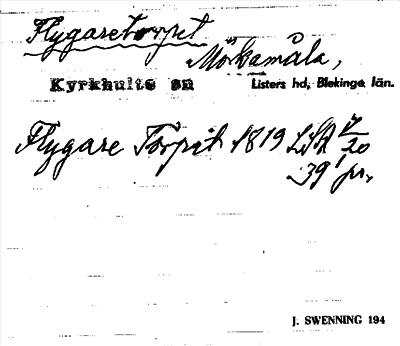 Flygaretorpet
Mörkamåla,
Kyrkhults sn Listers hd, Blekinge län.
Flygare Torpet 1819 LSA 7/20
39 pr,
J. SWENNING 194